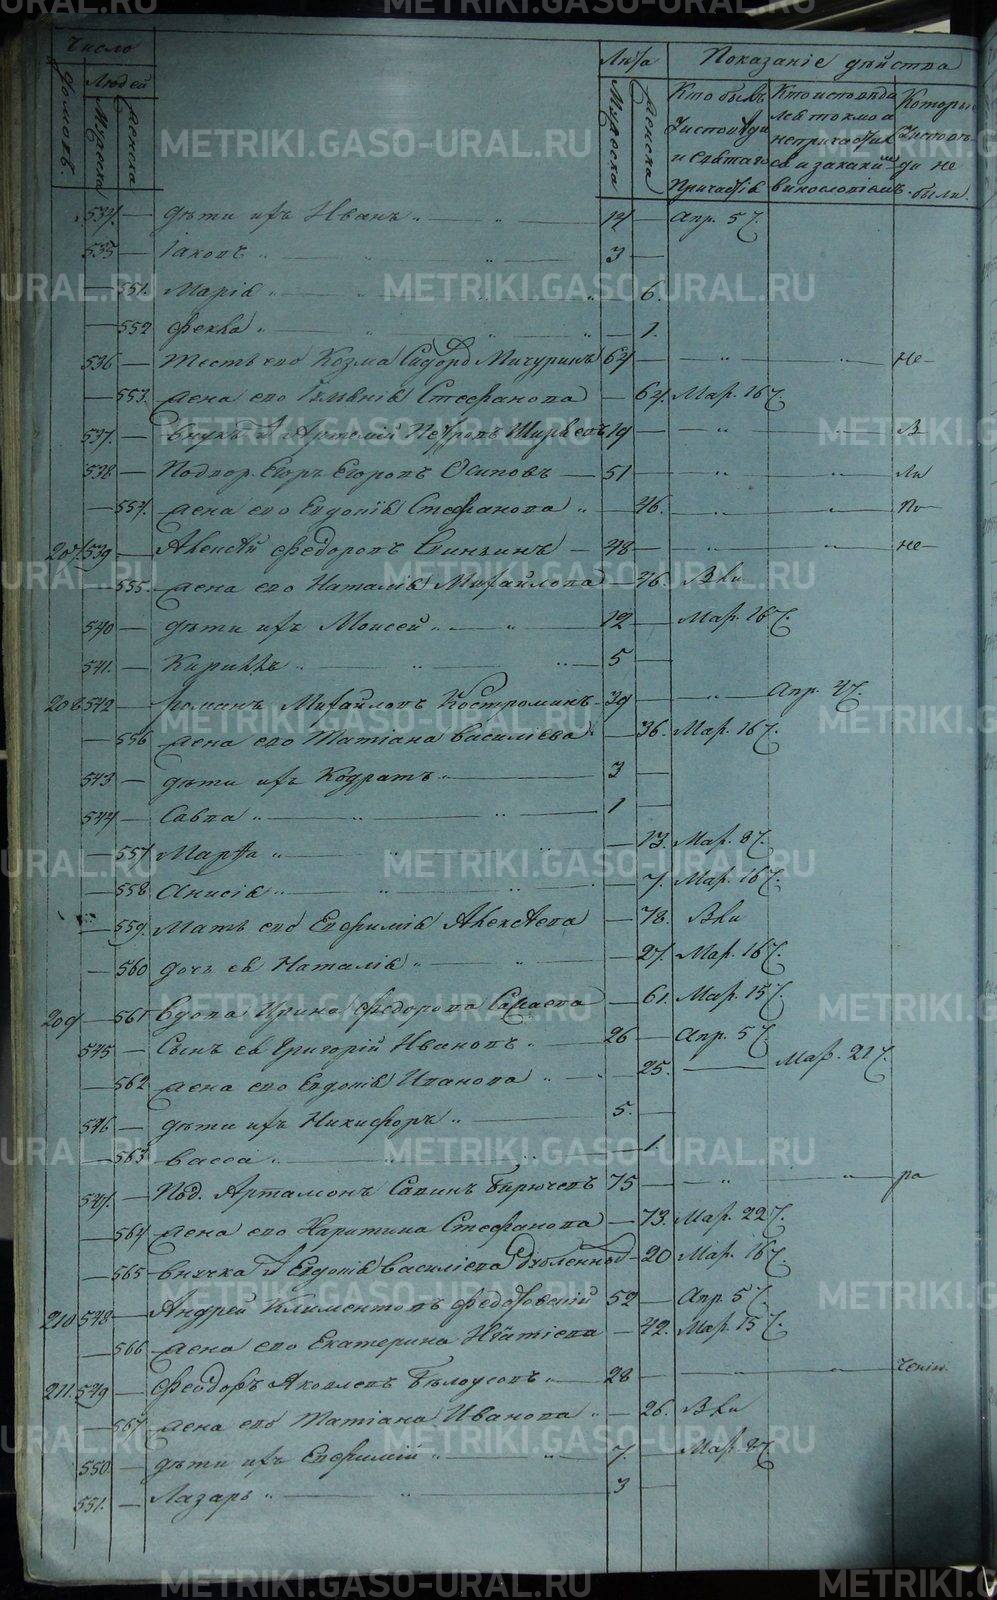 Число
Людей
домовъ.
Мужеска
женска
Лѣта
Мужеска
женска
Показаніе дѣйства
Кто былъ у исповѣди и святаго причастія
Кто исповѣда
Которые у исповѣди не были.
534. — дѣти ихъ Иванъ 14 — Апр. 5 7.
535 — Іаковъ 3 —
— 551. Марія — 6.
— 552 Фекла — 1.
536 — Тесть его Козма Сидоровъ Мичуринъ 64 — не
— 553. жена его Стефанова — 64. Мар. 16 7.
537. — Внукъ Артемій Петровъ 19 — в
538. — Егоръ Егоровъ Осиповъ — 51 — ли
— 554. жена его Евдокія Стефанова — 46. по
207. 539 — Алексѣй Федоровъ — 48 — не
— 555. жена его Наталія Михайлова — 46. Вли
540 — дѣти ихъ Моисей 12 — Мар. 16 7.
541. — Кириллъ 5 —
208. 542 — Романъ Михайловъ Костроминъ 39 — Апр. 4 7.
— 556 жена его Татіана Василіева — 36. Мар. 16 7.
543 — дѣти ихъ Кодратъ 3 —
544 — Савва 1 —
— 557 Марѳа — 13. Мар. 8 7.
— 558 Анисія — 7. Мар. 16 7.
— 559. Мать его Евфимія Алексѣева — 78. Вли
— 560 дочь ея Наталія — 27. Мар. 16 7.
209 — 561 Вдова Ирина Федорова — 61. Мар. 15 7.
545 — Сынъ ея Григорій Ивановъ 26 — Апр. 5 7.
— 562 жена его Евдокія Иванова — 25. — Мар. 21 7.
546 — дѣти ихъ Никифоръ 5. —
— 563 Васса — 1.
547. — Артамонъ Савинъ Бирючевъ 75 — ра
— 564 жена его Харитина Стефанова — 73. Мар. 22 7.
— 565 внучка Евдокія Василіева — 20 Мар. 16 7.
210 548 — Андрей Климентовъ 52 — Апр. 5 7.
— 566 жена его Екатерина — 42. Мар. 15 7.
211. 549 — Феодоръ Яковлевъ Бѣлоусовъ 28 — ченіи
— 567 жена его Татіана Иванова — 26. Вли
550. — дѣти ихъ Евфимій — 7. Мар. 8 7.
551. — Лазарь 3 —
METRIKI.GASO-URAL.RU